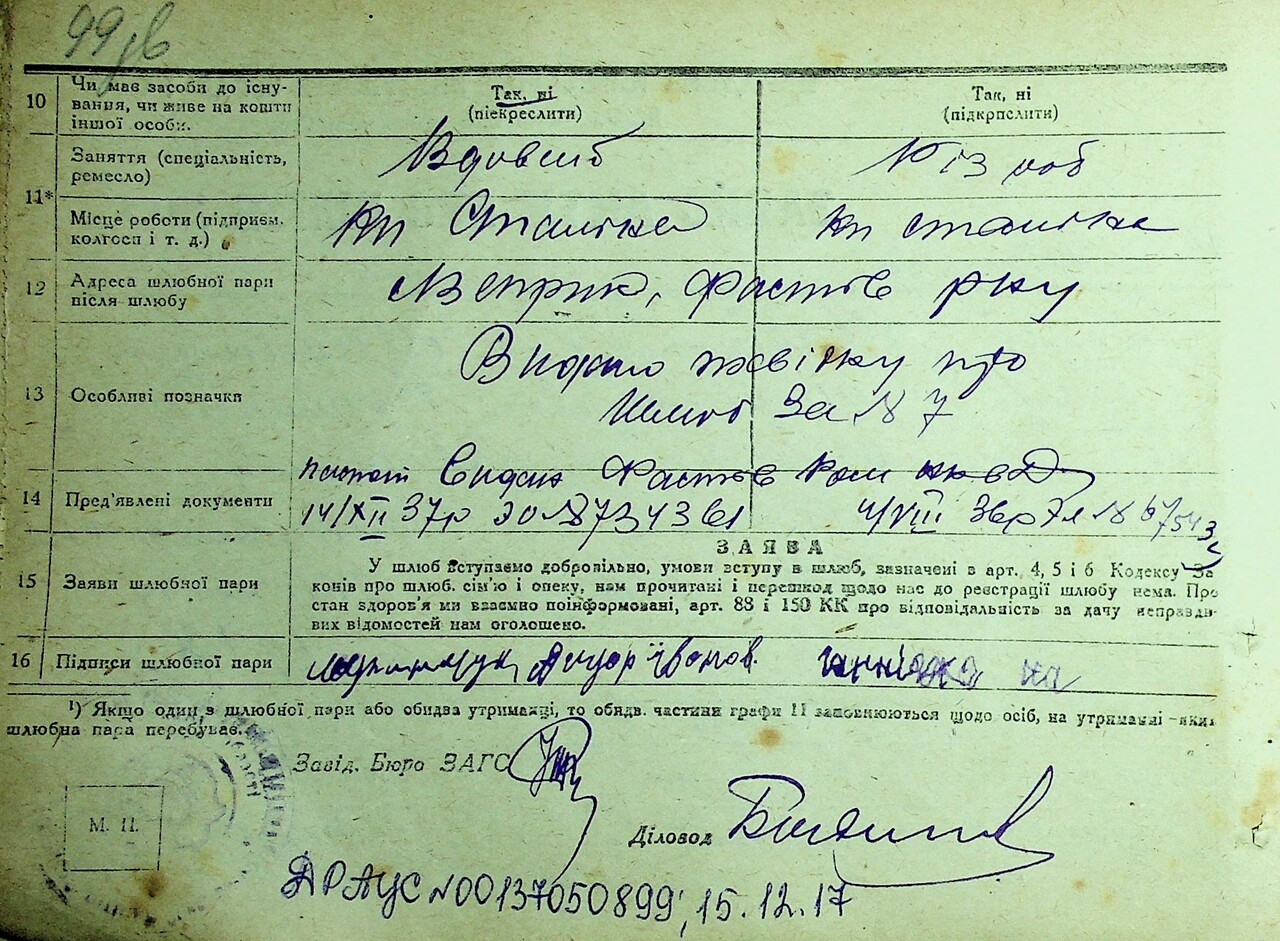 99зв
10 Чи має засоби до існу-
вання, чи живе на кошти
іншої особи.
Так, ні
(піекреслити)
Так, ні
(підкрпслити)
11*
Заняття (спеціальність,
ремесло)
Різ роб
Місце роботи (підприєм.
колгосп і т. д.)
Кп Сталіна
Кп Сталіна
12 Адреса шлюбної пари
після шлюбу
Веприк, Фастів рну
13 Особливі позначки
Видано посвідку про
Шлюб За № 7
14 Пред'явлені документи
паспорт Видан Фастів Ром нквд
14/XII 37р
4/VIII 36р
ЗАЯВА
15 Заяви шлюбної пари
У шлюб вступаємо добровільно, умови вступу в шлюб, зазначені в арт. 4, 5 і 6 Кодексу За
конів про шлюб. сім'ю і опеку, нам прочитані і перешкод щодо нас до реєстрації шлюбу нема. Про
стан здоров'я ми взаємно поінформовані, арт. 88 і 150 КК про відповідальність за дачу неправди-
вих відомостей нам оголошено.
16 Підписи шлюбної пари
¹) Якщо один з шлюбної пари або обидва утриманці, то обидв. частини графи 11 заповнюються щодо осіб, на утриманні яких
шлюбна пара перебуває.
Завід. Бюро ЗАГС
М. П.
Діловод
ДРАЦС №00137050899, 15.12.17